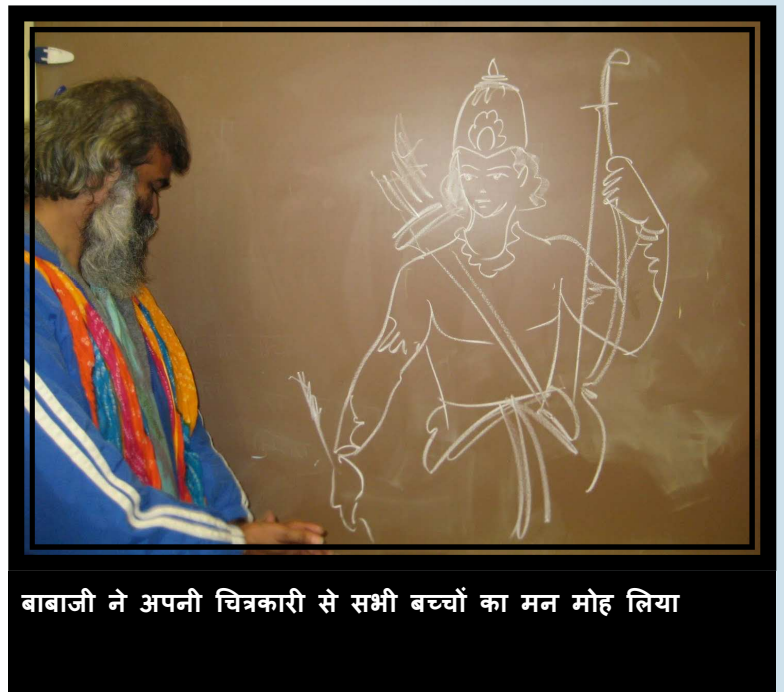 बाबाजी ने अपनी चित्रकारी से सभी बच्चों का मन मोह लिया